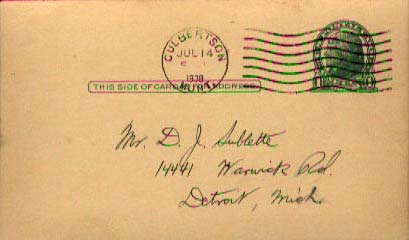 CULBERTSON
JUL 14
1938
MONT.
THIS SIDE OF CARD IS FOR ADDRESS
Mr. D. J. Sublette
14441 Warwick Rd.
Detroit, Mich.